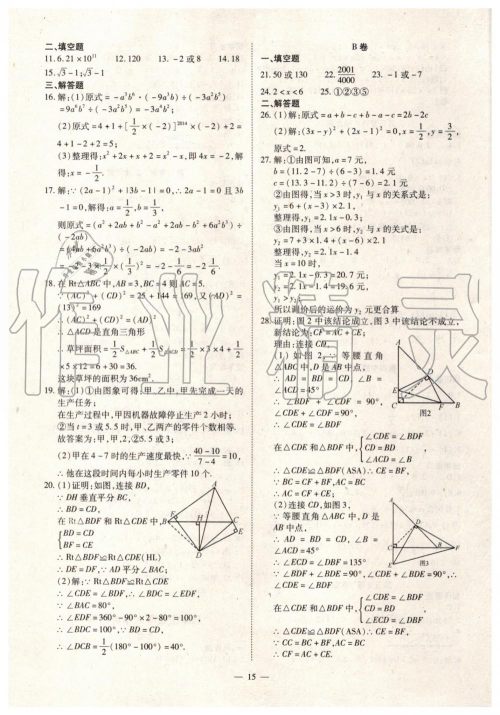 二、填空题
11. 6.21×10¹¹ 12. 120 13. －2或8 14. 18
15. √3－1;√3－1
三、解答题
16. 解:(1)原式=－a³b⁶·(－9a²b)÷(－3a²b⁵)
(2)原式=4+1+[1/2×(－2)]²⁰¹⁴×(－2)+2=
4+1－2+2=5;
(3)整理得:x²+2x+x+2=x²－x,即4x=－2,解
得:x=－1/2.
17. 解:∵(2a－1)²+|3b－1|=0,∴2a－1=0且3b
－1=0,解得:a=1/2,b=1/3,
÷(－2ab)
18. 在Rt△ABC中,AB=3,BC=4则AC=5.
∵(AC)²+(CD)²=25+144=169,又(AD)²=
(13)²=169
∴(AC)²+(CD)²=(AD)²
∴△ACD是直角三角形
×5×12=6+30=36.
这块草坪的面积为36cm².
19. 解:(1)①由图象可得:甲、乙中,甲先完成一天的
生产任务;
在生产过程中,甲因机器故障停止生产2小时;
②当t=3或5.5时,甲、乙两产的零件个数相等.
故答案为:甲,甲,2,②5.5或3;
(2)甲在4~7时的生产速度最快,∵(40－10)/(7－4)=10,
∴他在这段时间内每小时生产零件10个.
20. (1)证明:如图,连接BD,
∵DH垂直平分BC,
∴BD=CD,
在Rt△BDF和Rt△CDE中,
BD=CD
BF=CE
∴Rt△BDF≌Rt△CDE(HL)
∴DE=DF,∵AD平分∠BAC;
(2)解:∵Rt△BDF≌Rt△CDE
∴∠CDE=∠BDF,∴∠BDC=∠EDF
∵∠BAC=80°,
∴∠EDF=360°－90°×2－80°=100°,
∴∠BDC=100°,∵BD=CD,
∴∠DCB=1/2(180°－100°)=40°.
B卷
一、填空题
21. 50或130 22. 2001/4000 23. －1或－7
24. 2<x<6 25. ①②③⑤
二、解答题
26. (1)解:原式=a+b－c+b－a－c=2b－2c
(2)解:(3x－y)²+(2x－1)²=0,x=1/2,y=3/2,
原式=2.
27. 解:①由图可知,a=7元,
b=(11.2－7)÷(6－3)=1.4元
c=(13.3－11.2)÷(7－6)=2.1元
②由图得,当x>3时,y₁与x的关系式是:
y₁=6+(x－3)×2.1,
整理得,y₁=2.1x－0.3;
③由图得,当x>6时,y₂与x的关式是:
y₂=7+3×1.4+(x－6)×2.1
整理得,y₂=2.1x－1.4
当x=10时,
y₁=2.1x－0.3=20.7元;
y₂=2.1x－1.4=19.6元,
y₁>y₂,
所以调价后的运价为y₂元更合算
28. 证明:图2中该结论成立,图3中该结论不成立,
新结论为:CF=AC+CE;
理由:连接CD,
(1)如图2,∵等腰直角
△ABC中,D是AB中点,
∴AD=BD=CD,∠B=
∠ACD=45°
∴∠BDF+∠CDF=90°,
∵∠CDE+∠CDF=90°,
∴∠CDE=∠BDF
图2
∠CDE=∠BDF
在△CDE和△BDF中, CD=BD
∠ACD=∠B
∴△CDE≌△BDF(ASA)∴CE=BF,
∵BC=CF+BF,AC=BC
∴AC=CF+CE;
(2)连接CD,如图3,
∵等腰直角△ABC中,D是
AB中点,
∴AD=BD=CD,∠B=
∠ACD=45°
∴∠ECD=∠DBF=135°
图3
∵∠BDF+∠BDE=90°,∠CDE+∠BDE=90°,∴
∠CDE=∠BDF
∠CDE=∠BDF
在△CDE和△BDF中, CD=BD
∠ECD=∠DBF
∴△CDE≌△BDF(ASA)∴CE=BF,
∴CF=AC+CE.
15